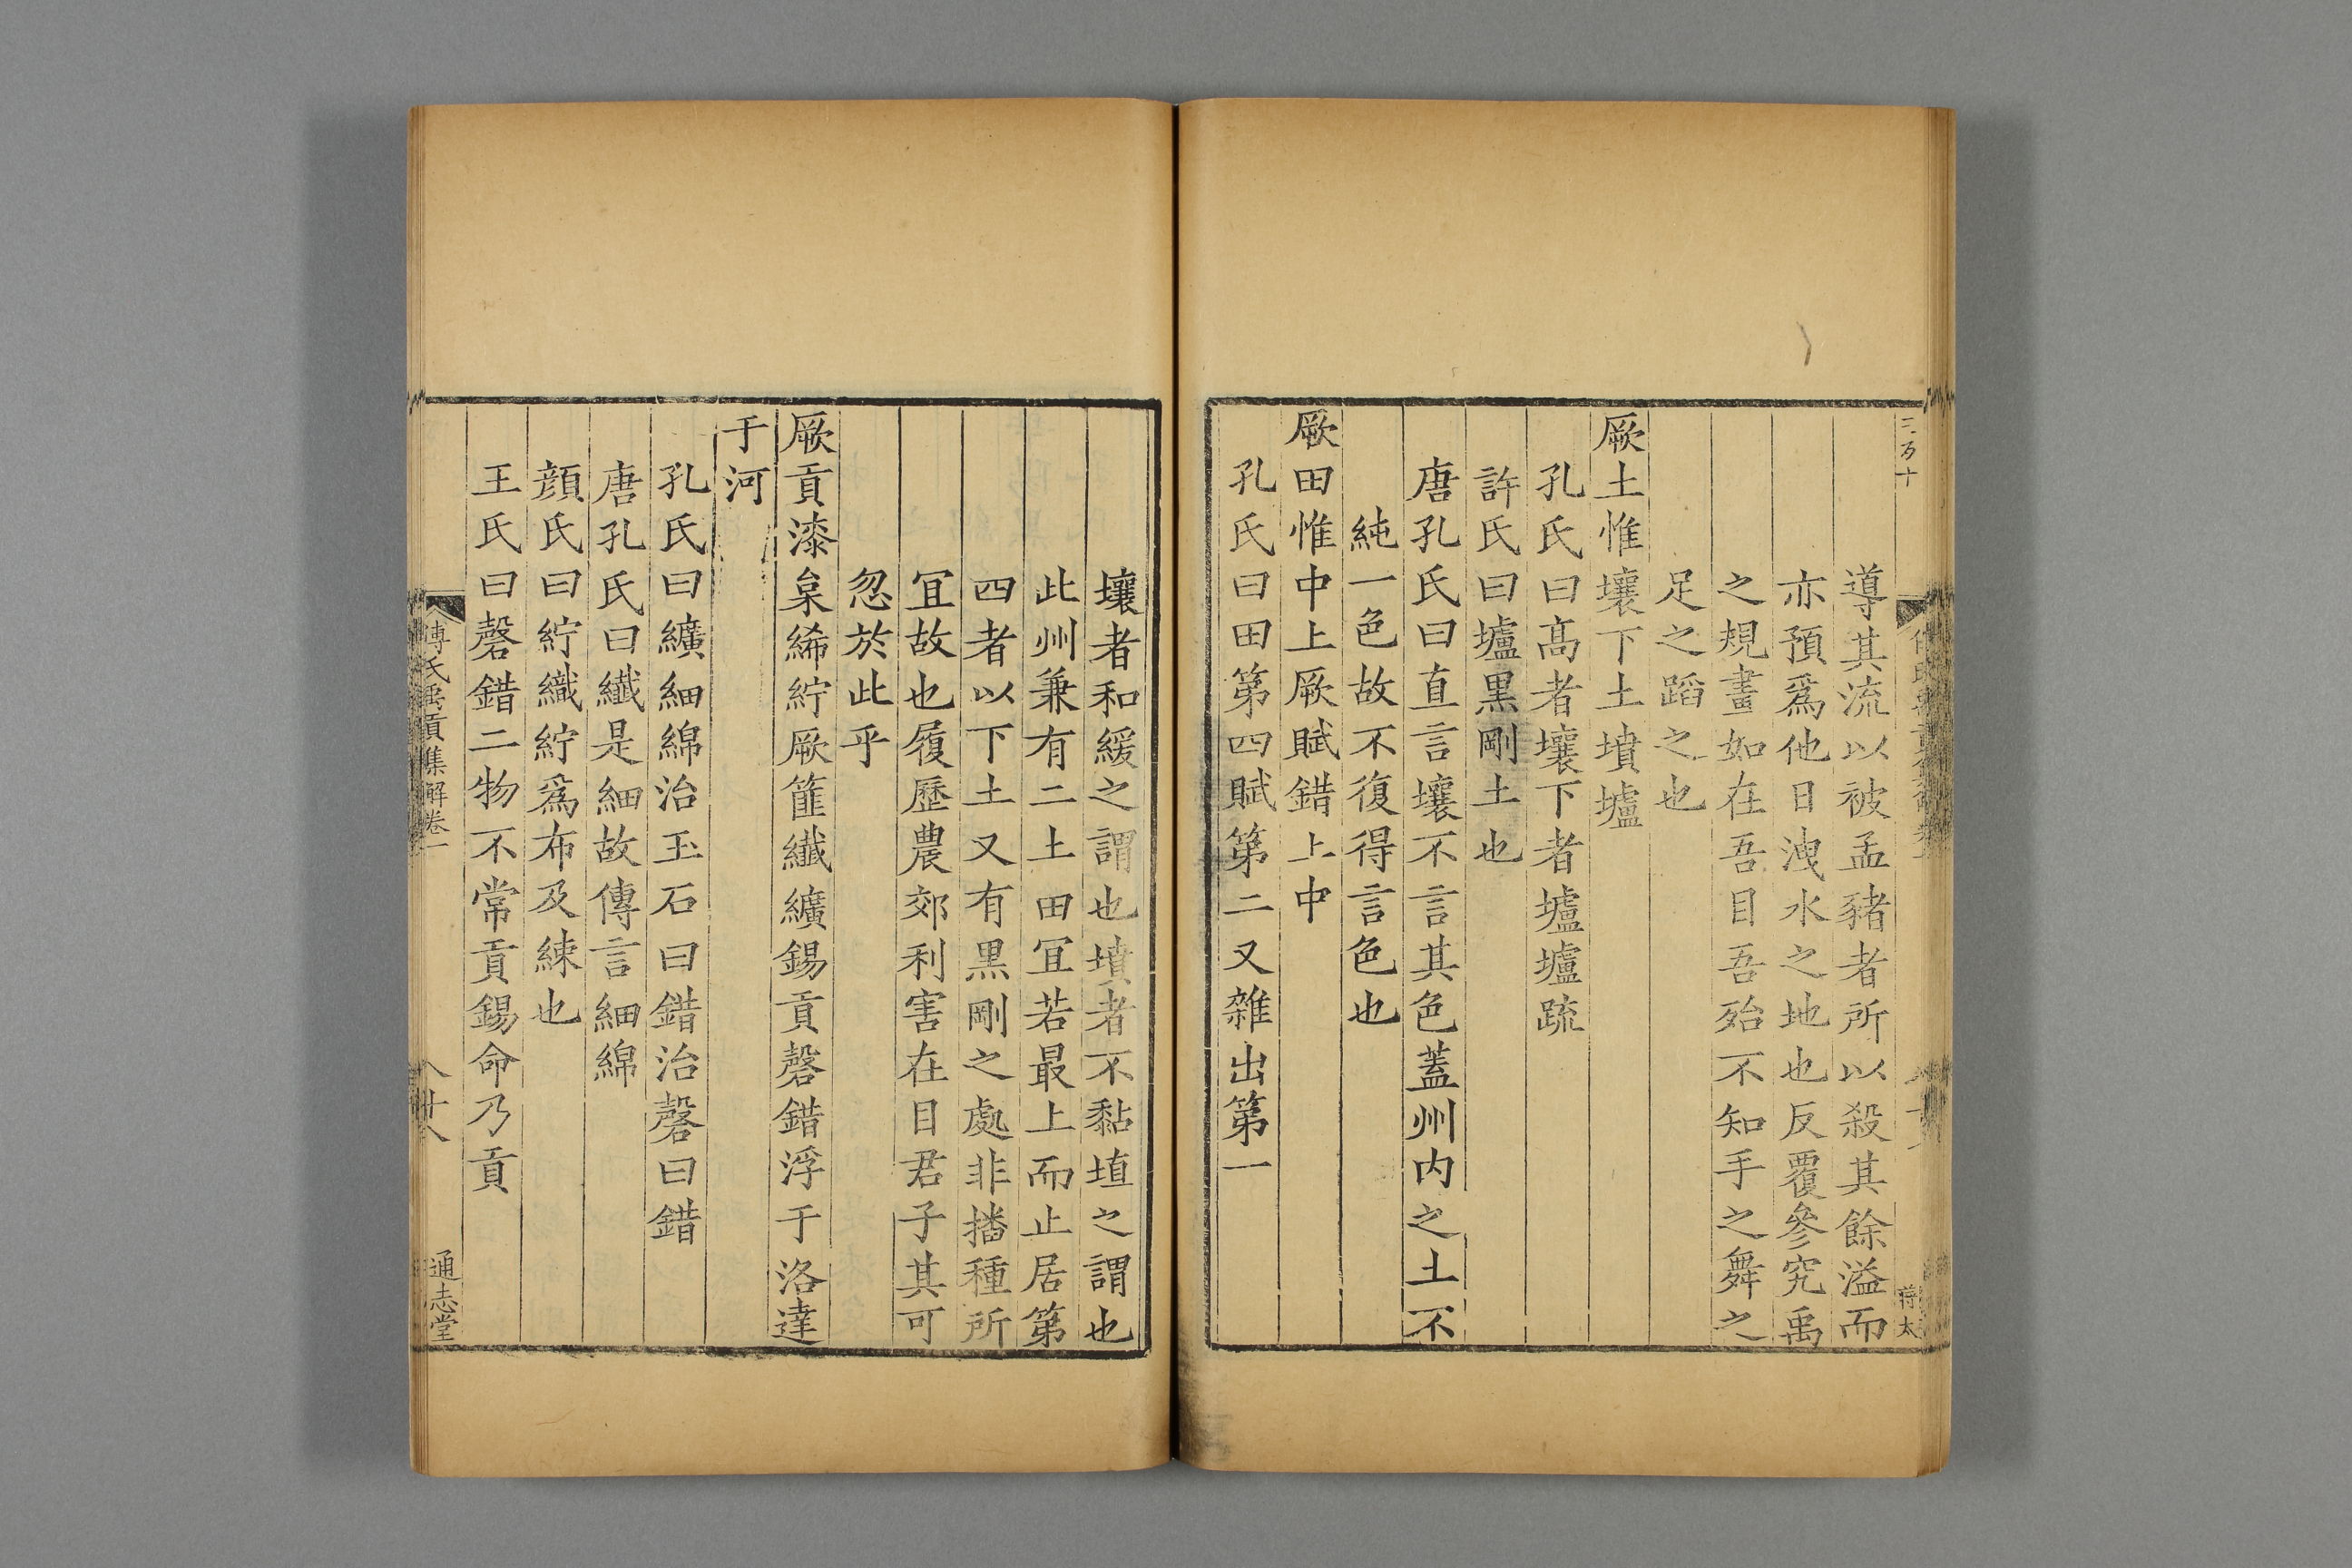 導其流以被孟豬者所以殺其餘溢而
亦預爲他日洩水之地也反覆參究禹
之規畫如在吾目吾殆不知手之舞之
足之蹈之也
厥土惟壤下土墳壚
孔氏曰高者壤下者壚壚疏
許氏曰壚黒剛土也
唐孔氏曰直言壤不言其色蓋州内之土不
純一色故不復得言色也
厥田惟中上厥賦錯上中
孔氏曰田第四賦第二又雜出第一
壤者和緩之謂也墳者不黏埴之謂也
此州兼有二土田冝若最上而止居第
四者以下土又有黒剛之處非播種所
冝故也履歷農郊利害在目君子其可
忽於此乎
厥貢漆枲絺紵厥篚纖纊錫貢磬錯浮于洛達
于河
孔氏曰纊細綿治玉石曰錯治磬曰錯
唐孔氏曰纖是細故傳言細綿
顔氏曰紵織紵爲布及練也
王氏曰磬錯二物不常貢錫命乃貢
傅氏禹貢集解卷一
廿八
通志堂